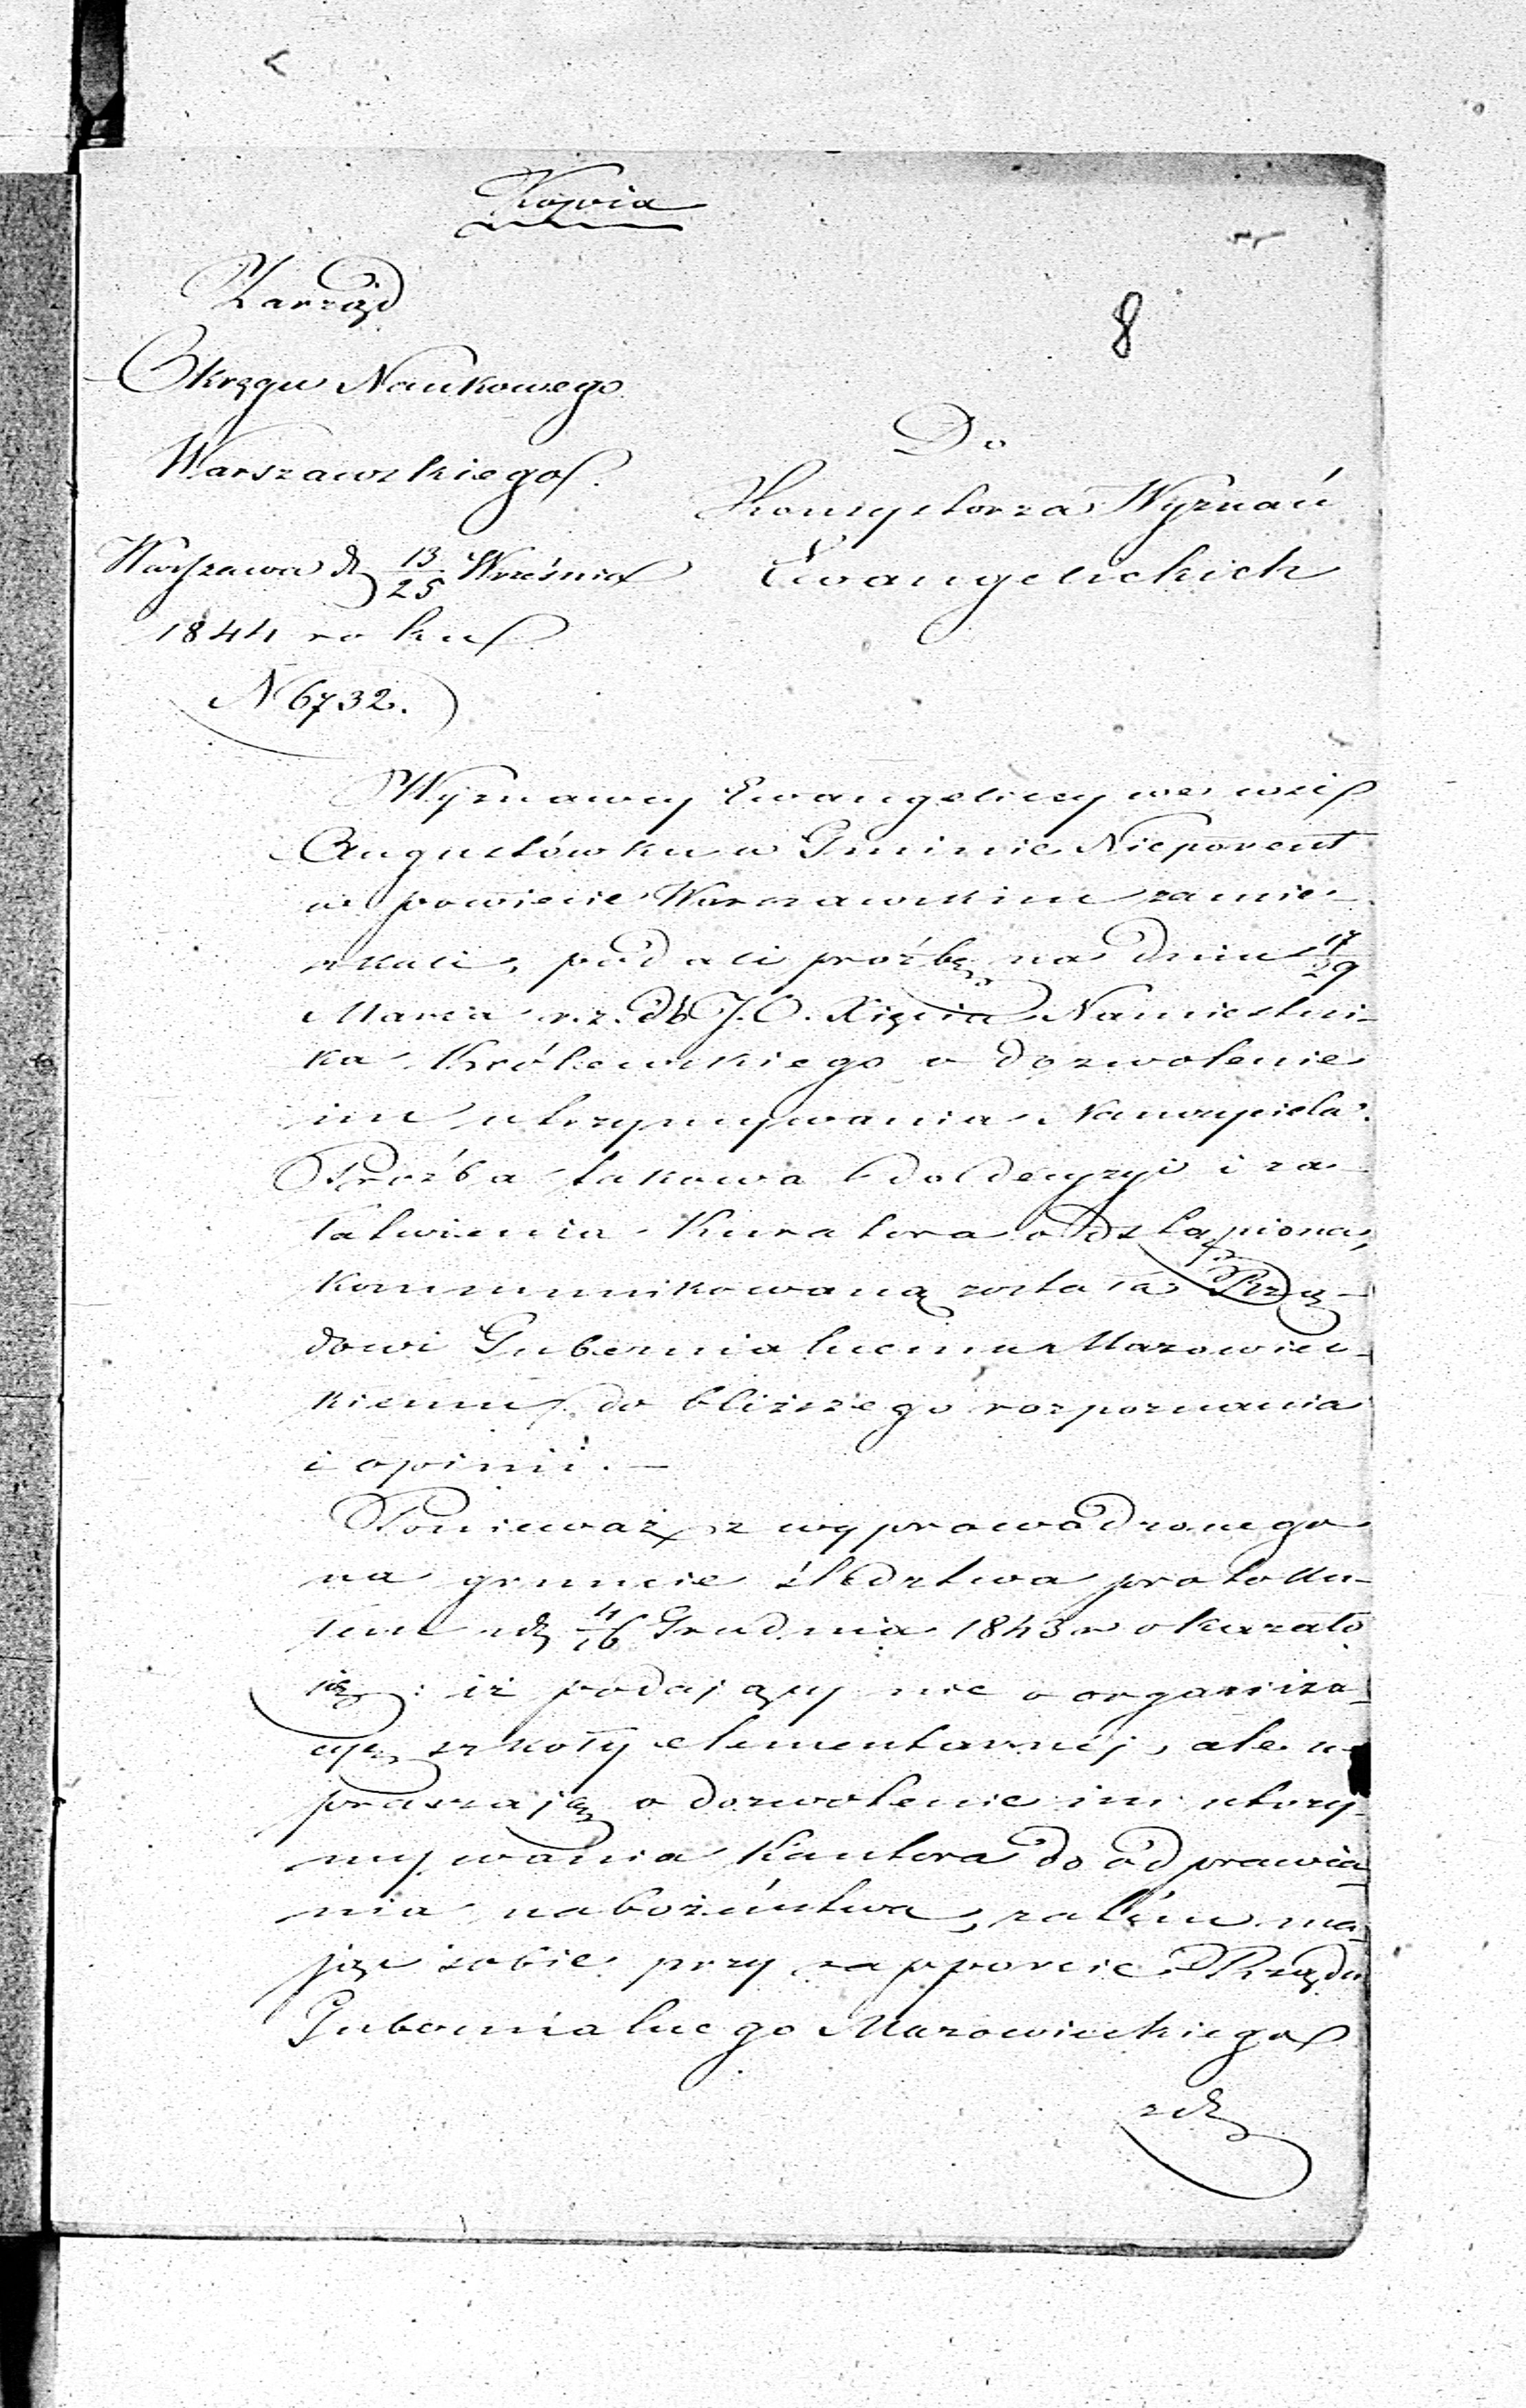 Kopia
8
Zarząd
Okręgu Naukowego
Warszawskiego.
Warszawa d. 13/25 Września
1844 roku
N 6732.
Do
Konsystorza Wyznań
Ewangelickich
Wyznawcy Ewangeliccy we wsi
Augustówku w Gminie Nieporent
w powiecie Warszawskim zamie-
szkali, podali prośbę na dniu 17/29
Marca r. z. do J. O. Xięcia Namiestni-
ka Królewskiego o dozwolenie
im utrzymywania Nauczyciela.
Prośba takowa do decyzyi i za-
łatwienia Kuratora odstąpiona,
kommunikowaną została Rzą-
dowi Gubernialnemu Mazowiec-
kiemu do bliższego rozpoznania
i opinii. —
Ponieważ z wyprowadzonego
na gruncie śledztwa protoku-
łem z d. 4/16 Grudnia 1843 r okazało
się: iż podający nie o organiza-
cyę szkoły elementarnéj, ale u-
praszają o dozwolenie im utrzy-
mywania Kantora do odprawia-
nia nabożeństwa, zatém ma-
jąc sobie przy rapporcie Rządu
Gubernialnego Mazowieckiego
z d.